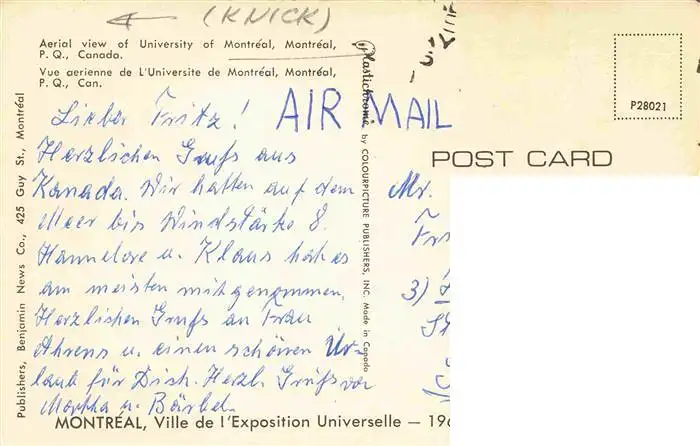 (KNICK)
Aerial view of University of Montréal, Montréal,
P. Q., Canada.
Vue aerienne de L'Universite de Montréal, Montréal,
P. Q., Can.
Lieber Fritz!
Herzlichen Gruß aus
Kanada. Wir hatten auf dem
Meer bis Windstärke 8.
Hannelore u. Klaus hat es
am meisten mitgenommen.
Herzlichen Gruß an Frau
Ahrens u. einen schönen Ur-
laub für Dich. Herzl. Grüße von
Martha u. Bärbel.
MONTRÉAL, Ville de l'Exposition Universelle — 196
Publishers, Benjamin News Co., 425 Guy St., Montréal
Plastichrome by COLOURPICTURE PUBLISHERS, INC. Made in Canada
AIR MAIL
P28021
POST CARD
Mr.
Fri
3)